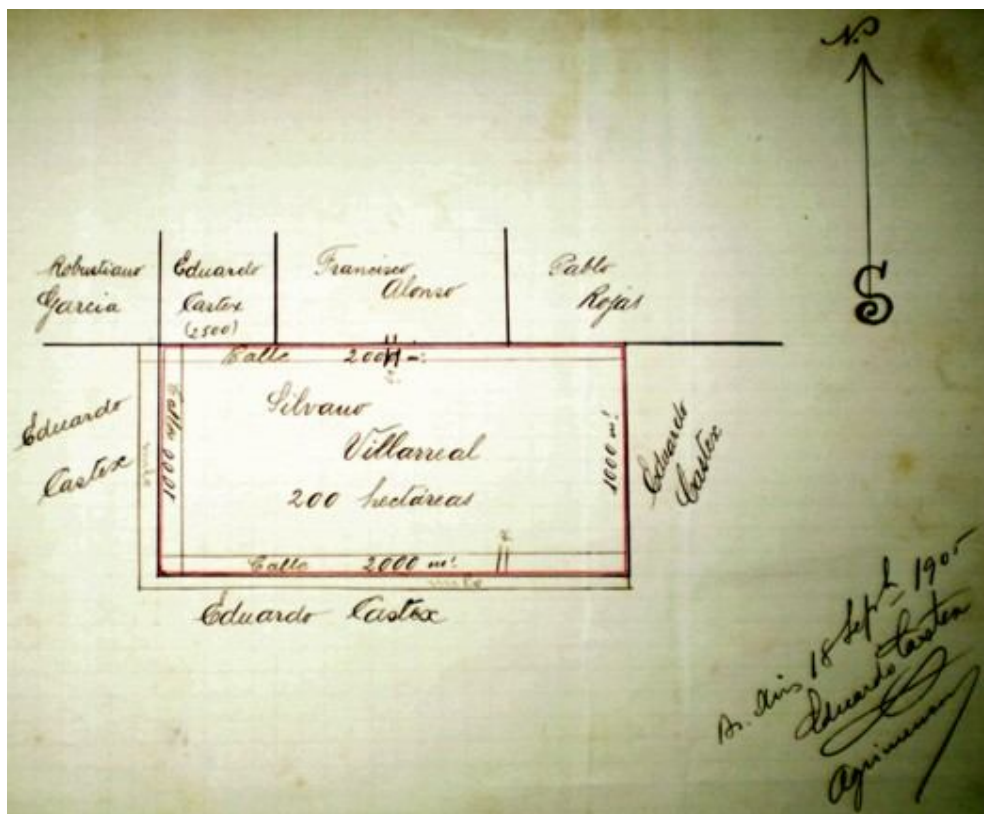 N.
S
Robustiano
Garcia
Eduardo
Castex
(2500)
Francisco
Alonso
Pablo
Rojas
Calle 2000 m.
Eduardo
Castex
Calle
1000
Silvano
Villarreal
200 hectáreas
1000 m.
Eduardo
Castex
Calle 2000 m.
Eduardo Castex
Bs. Aires 18 Sept. 1905
Eduardo Castex
Agrimensor